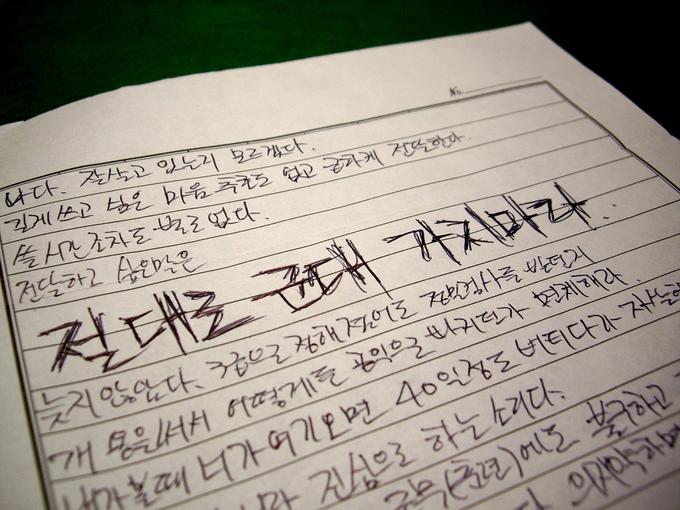 No.
나다. 잘살고 있는지 모르겠다.
길게 쓰고 싶은 마음 추호도 없고 급하게 전달한다.
쓸 시간조차도 별로 없다.
전달하고 싶은말은
절대로 군대 가지마라..
늦지 않았다. 3급으로 정해졌어도 정밀검사를 받던지
개 어떻게든 공익으로 빠지던가 면제해라.
내가 볼때 니가 여기오면 40일정도 버티다가
진심으로 하는 소리다.
(훈련)에도 불구하고